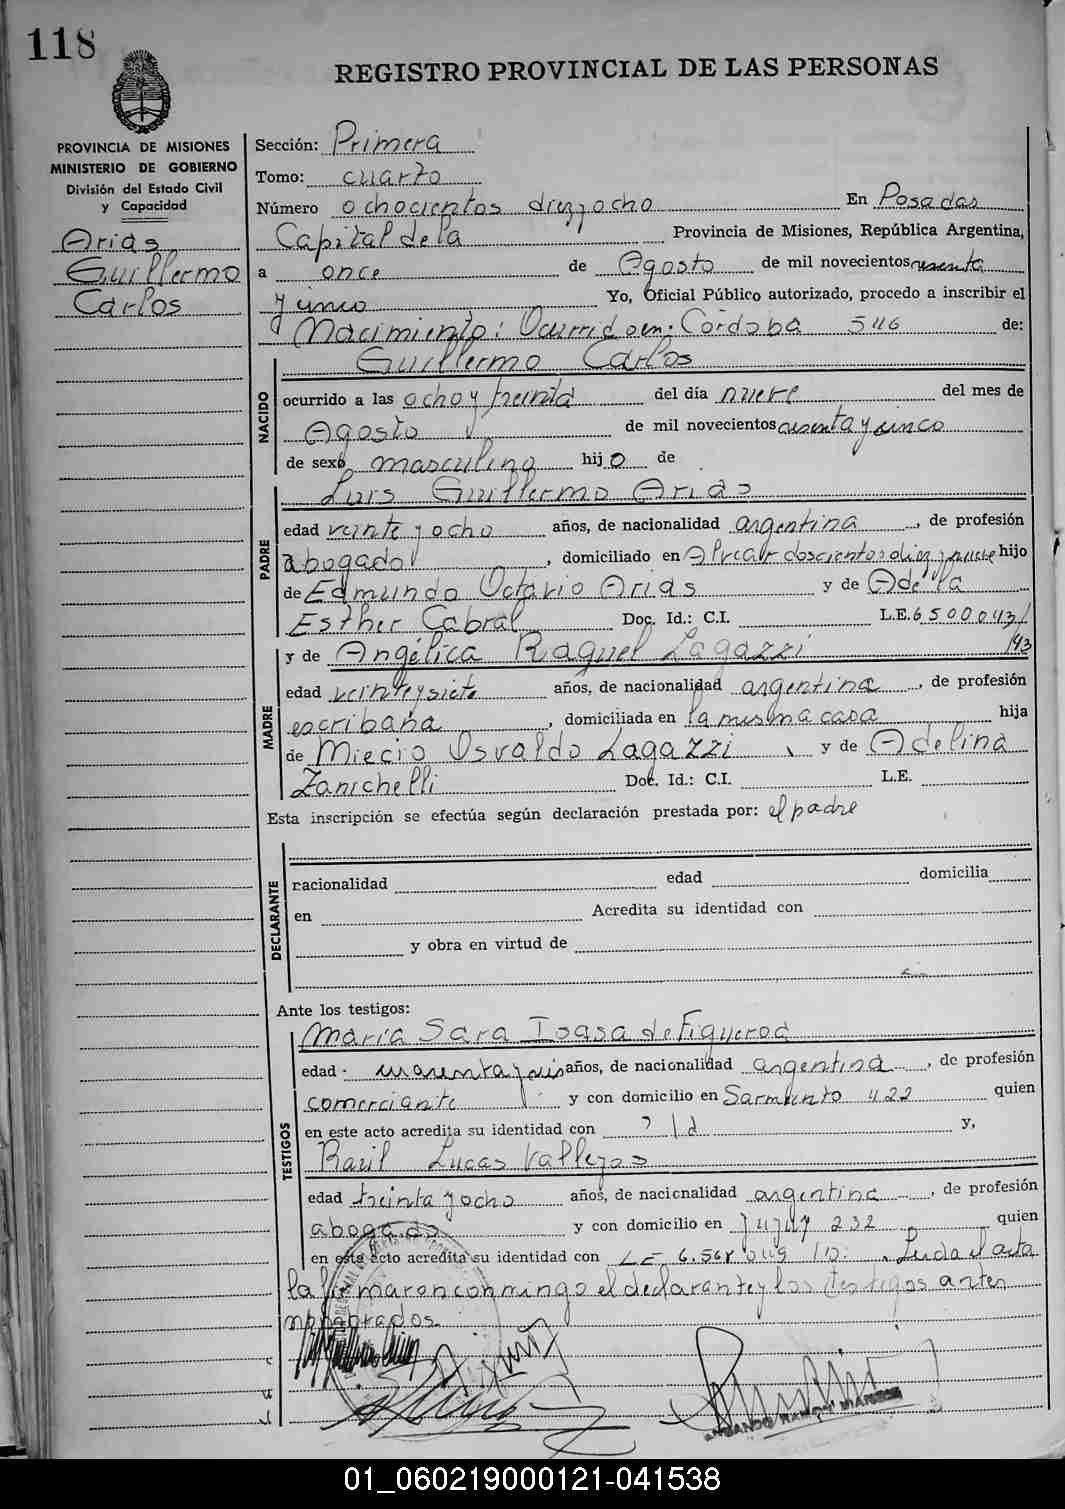 118
REGISTRO PROVINCIAL DE LAS PERSONAS
PROVINCIA DE MISIONES
MINISTERIO DE GOBIERNO
División del Estado Civil
y Capacidad
Arias
Guillermo
Carlos
Sección: Primera
Tomo: cuarto
Número ochocientos diez y ocho En Posadas
Capital de la Provincia de Misiones, República Argentina,
a once de Agosto de mil novecientos sesenta
y cinco Yo, Oficial Público autorizado, procedo a inscribir el
Nacimiento: Ocurrido en: Cordoba 546 de:
Guillermo Carlos
NACIDO
ocurrido a las ocho y treinta del día nueve del mes de
Agosto de mil novecientos sesenta y cinco
de sexo masculino hijo de
Luis Guillermo Arias
PADRE
edad veinte y ocho años, de nacionalidad argentina, de profesión
abogado, domiciliado en Alvear doscientos diez y nueve hijo
de Edmundo Octavio Arias y de Adela
Esther Cabral Doc. Id.: C.I. L.E.
y de Angélica Raquel Lagazzi
MADRE
edad veinte y siete años, de nacionalidad argentina, de profesión
escribana, domiciliada en la misma casa hija
de Miecio Osvaldo Lagazzi y de Adelina
Zanichelli Doc. Id.: C.I. L.E.
Esta inscripción se efectúa según declaración prestada por: el padre
DECLARANTE
nacionalidad edad domicilia
en Acredita su identidad con
y obra en virtud de
Ante los testigos:
María Sara Isasa de Figueroa
TESTIGOS
edad años, de nacionalidad argentina, de profesión
comerciante y con domicilio en Sarmiento 422 quien
en este acto acredita su identidad con y,
Raúl Lucas Vallejos
edad treinta y ocho años, de nacionalidad argentina, de profesión
abogado y con domicilio en Jujuy 232 quien
en este acto acredita su identidad con LE Leida el acta
la firmaron conmingo el declarante y los testigos antes
nombrados.
01_060219000121-041538